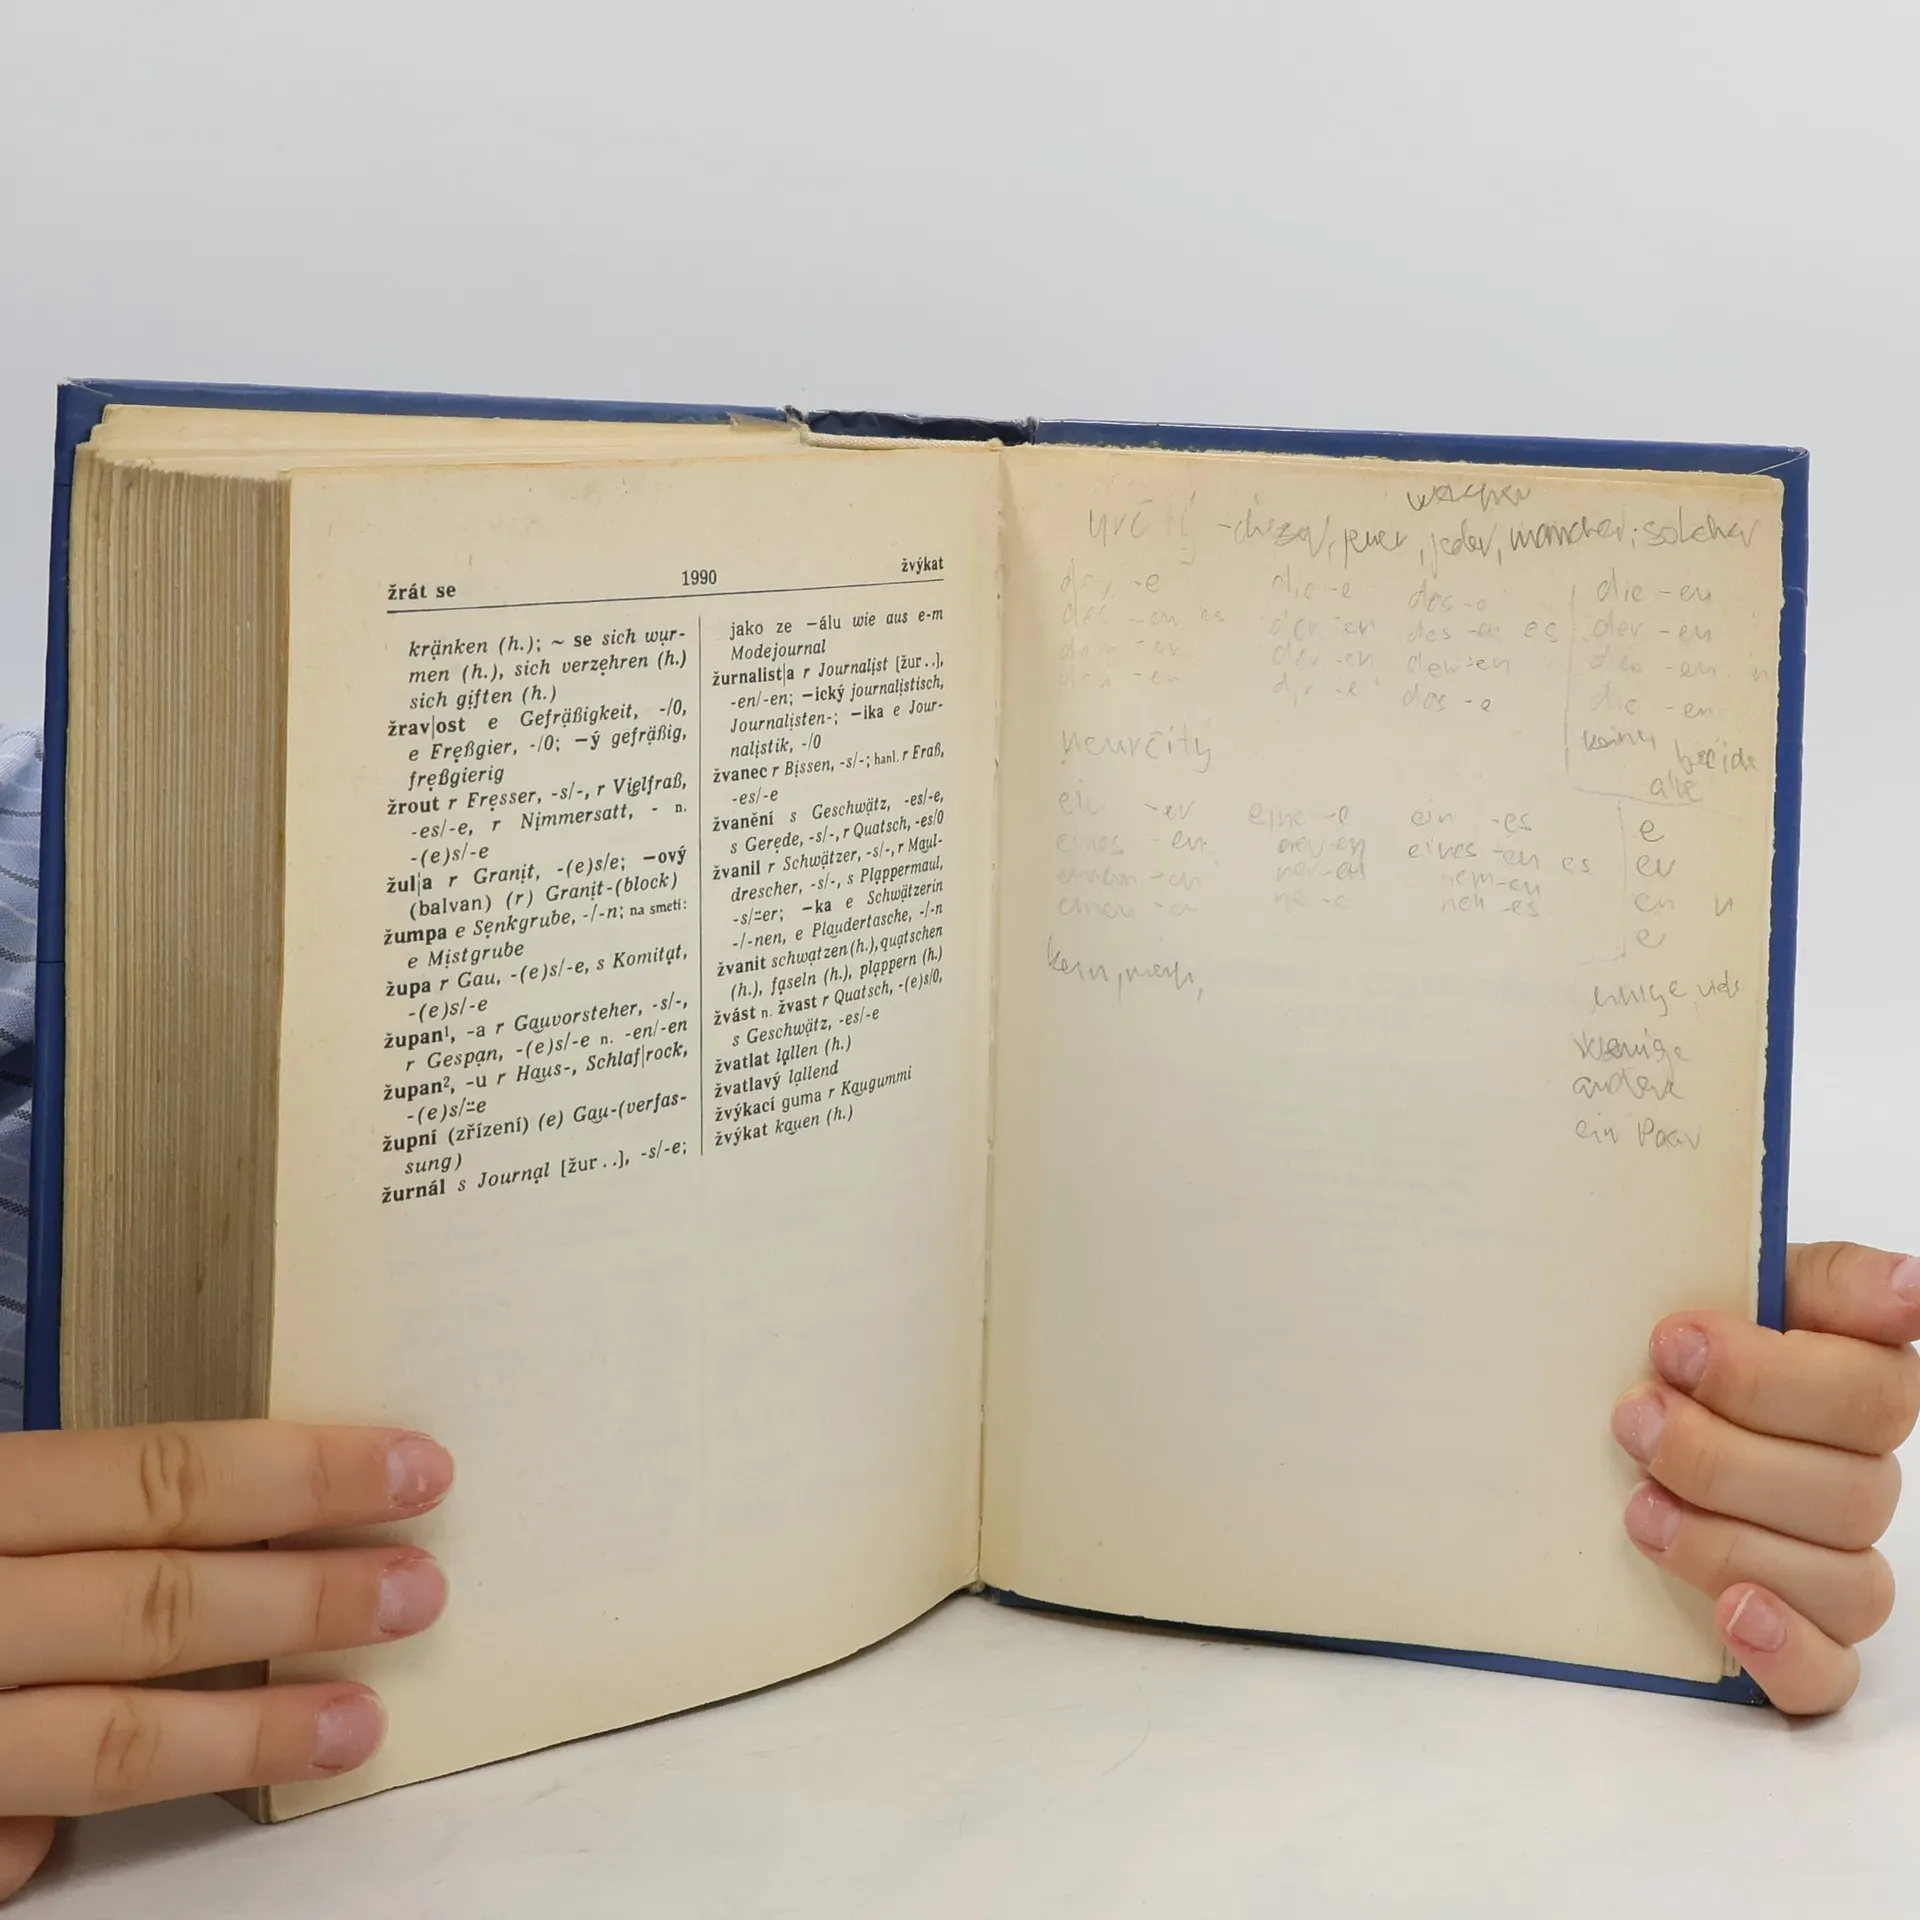 žrát se 1990 žvýkat
kränken (h.); ~ se sich wur-
men (h.), sich verzehren (h.)
sich giften (h.)
žrav|ost e Gefräßigkeit, -/0,
e Freßgier, -/0; —ý gefräßig,
freßgierig
žrout r Fresser, -s/-, r Vielfraß,
-es/-e, r Nimmersatt, - n.
-(e)s/-e
žul|a r Granit, -(e)s/e; —ový
(balvan) (r) Granit-(block)
žumpa e Senkgrube, -/-n; na smetí:
e Mistgrube
župa r Gau, -(e)s/-e, s Komitat,
-(e)s/-e
župan¹, -a r Gauvorsteher, -s/-,
r Gespan, -(e)s/-e n. -en/-en
župan², -u r Haus-, Schlaf|rock,
-(e)s/⸚e
župní (zřízení) (e) Gau-(verfas-
sung)
žurnál s Journal [žur..], -s/-e;
jako ze —álu wie aus e-m
Modejournal
žurnalist|a r Journalist [žur..],
-en/-en; —ický journalistisch,
Journalisten-; —ika e Jour-
nalistik, -/0
žvanec r Bissen, -s/-; hanl. r Fraß,
-es/-e
žvanění s Geschwätz, -es/-e,
s Gerede, -s/-, r Quatsch, -es/0
žvanil r Schwätzer, -s/-, r Maul-
drescher, -s/-, s Plappermaul,
-s/⸚er; —ka e Schwätzerin
-/-nen, e Plaudertasche, -/-n
žvanit schwatzen (h.), quatschen
(h.), faseln (h.), plappern (h.)
žvást n. žvast r Quatsch, -(e)s/0,
s Geschwätz, -es/-e
žvatlat lallen (h.)
žvatlavý lallend
žvýkací guma r Kaugummi
žvýkat kauen (h.)
welcher
určitý - dieser, jener, jeder, mancher; solcher
der -e die -e das -e die -en
des -en es der -en des -en es der -en
dem -en der -en dem -en den -en n
den -en die -e das -e die -en
keine beide
alle
neurčitý
ein -er eine -e ein -es e
eines -en ner-en eines -en es er
einem -en ner-en nem-en en n
einen -en ne-e nen -es e
kein, mein,
einige, viele
wenige
andere
ein Paar